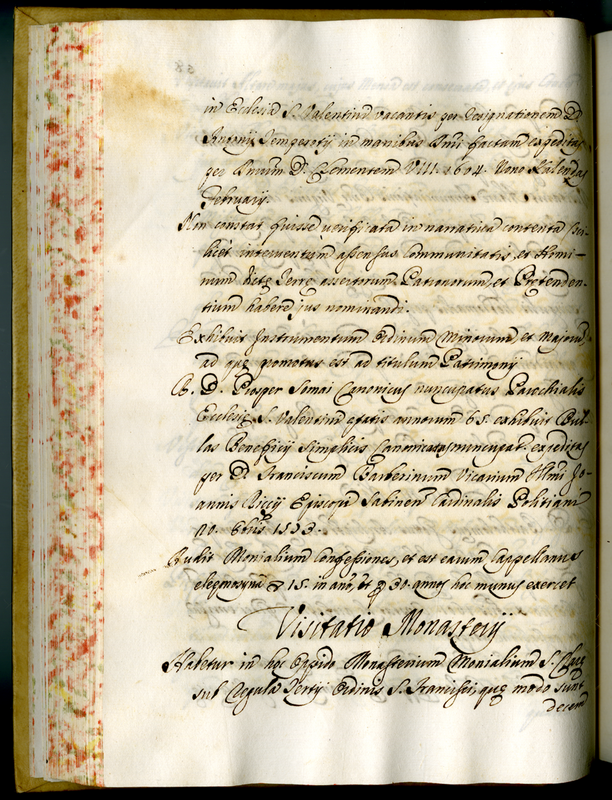 in Ecclesia S. Valentini vacantis per resignationem D.
Antonij Temperotij in manibus factam expeditas
per D. Clementem VIII. 1604. Nono Kalendas
Februarij.
Non constat fuisse verificata in narrativa contenta sci-
licet interventum assensus Communitatis, et Homi-
num dictę Terrę assertorum Patronorum, et Prętenden-
tium habere jus nominandi.
Exhibuit Instrumentum Ordinum Minorum, et Majorum,
ad quę promotus est ad titulum Patrimonij
R. D. Prosper Canonicus nuncupatus Parochialis
Ecclesię S. Valentini ętatis annorum 65. exhibuit Bul-
las Beneficij Simplicis Canonicatus nuncupat. expeditas
per D. Franciscum Barberinum Vicarium Illmi Jo-
annis Riccij Episcopi Sabinen Cardinalis Politiani
Audit Monialium Confessiones, et est earum Cappellanus
eleemosyna 15. in año, et 30. annos hoc munus exercet
Visitatio Monasterij
Habetur in hoc Oppido Monasterium Monialium S. Clarę
sub Regula Tertij Ordinis S. Francisci, quę modo sunt
decem